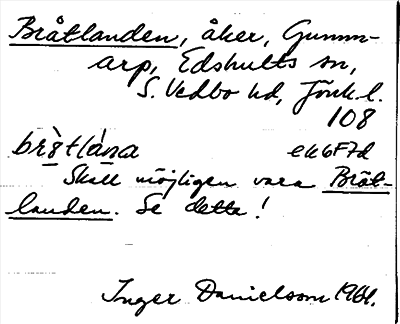 Bråtlanden, åker, Gumm-
arp, Edshults sn,
S. Vedbo hd, Jönk.l.
108
brötlána ek6F7d
Skall möjligen vara Bråt-
landen. Se detta!
Inger Danielsson 1961.